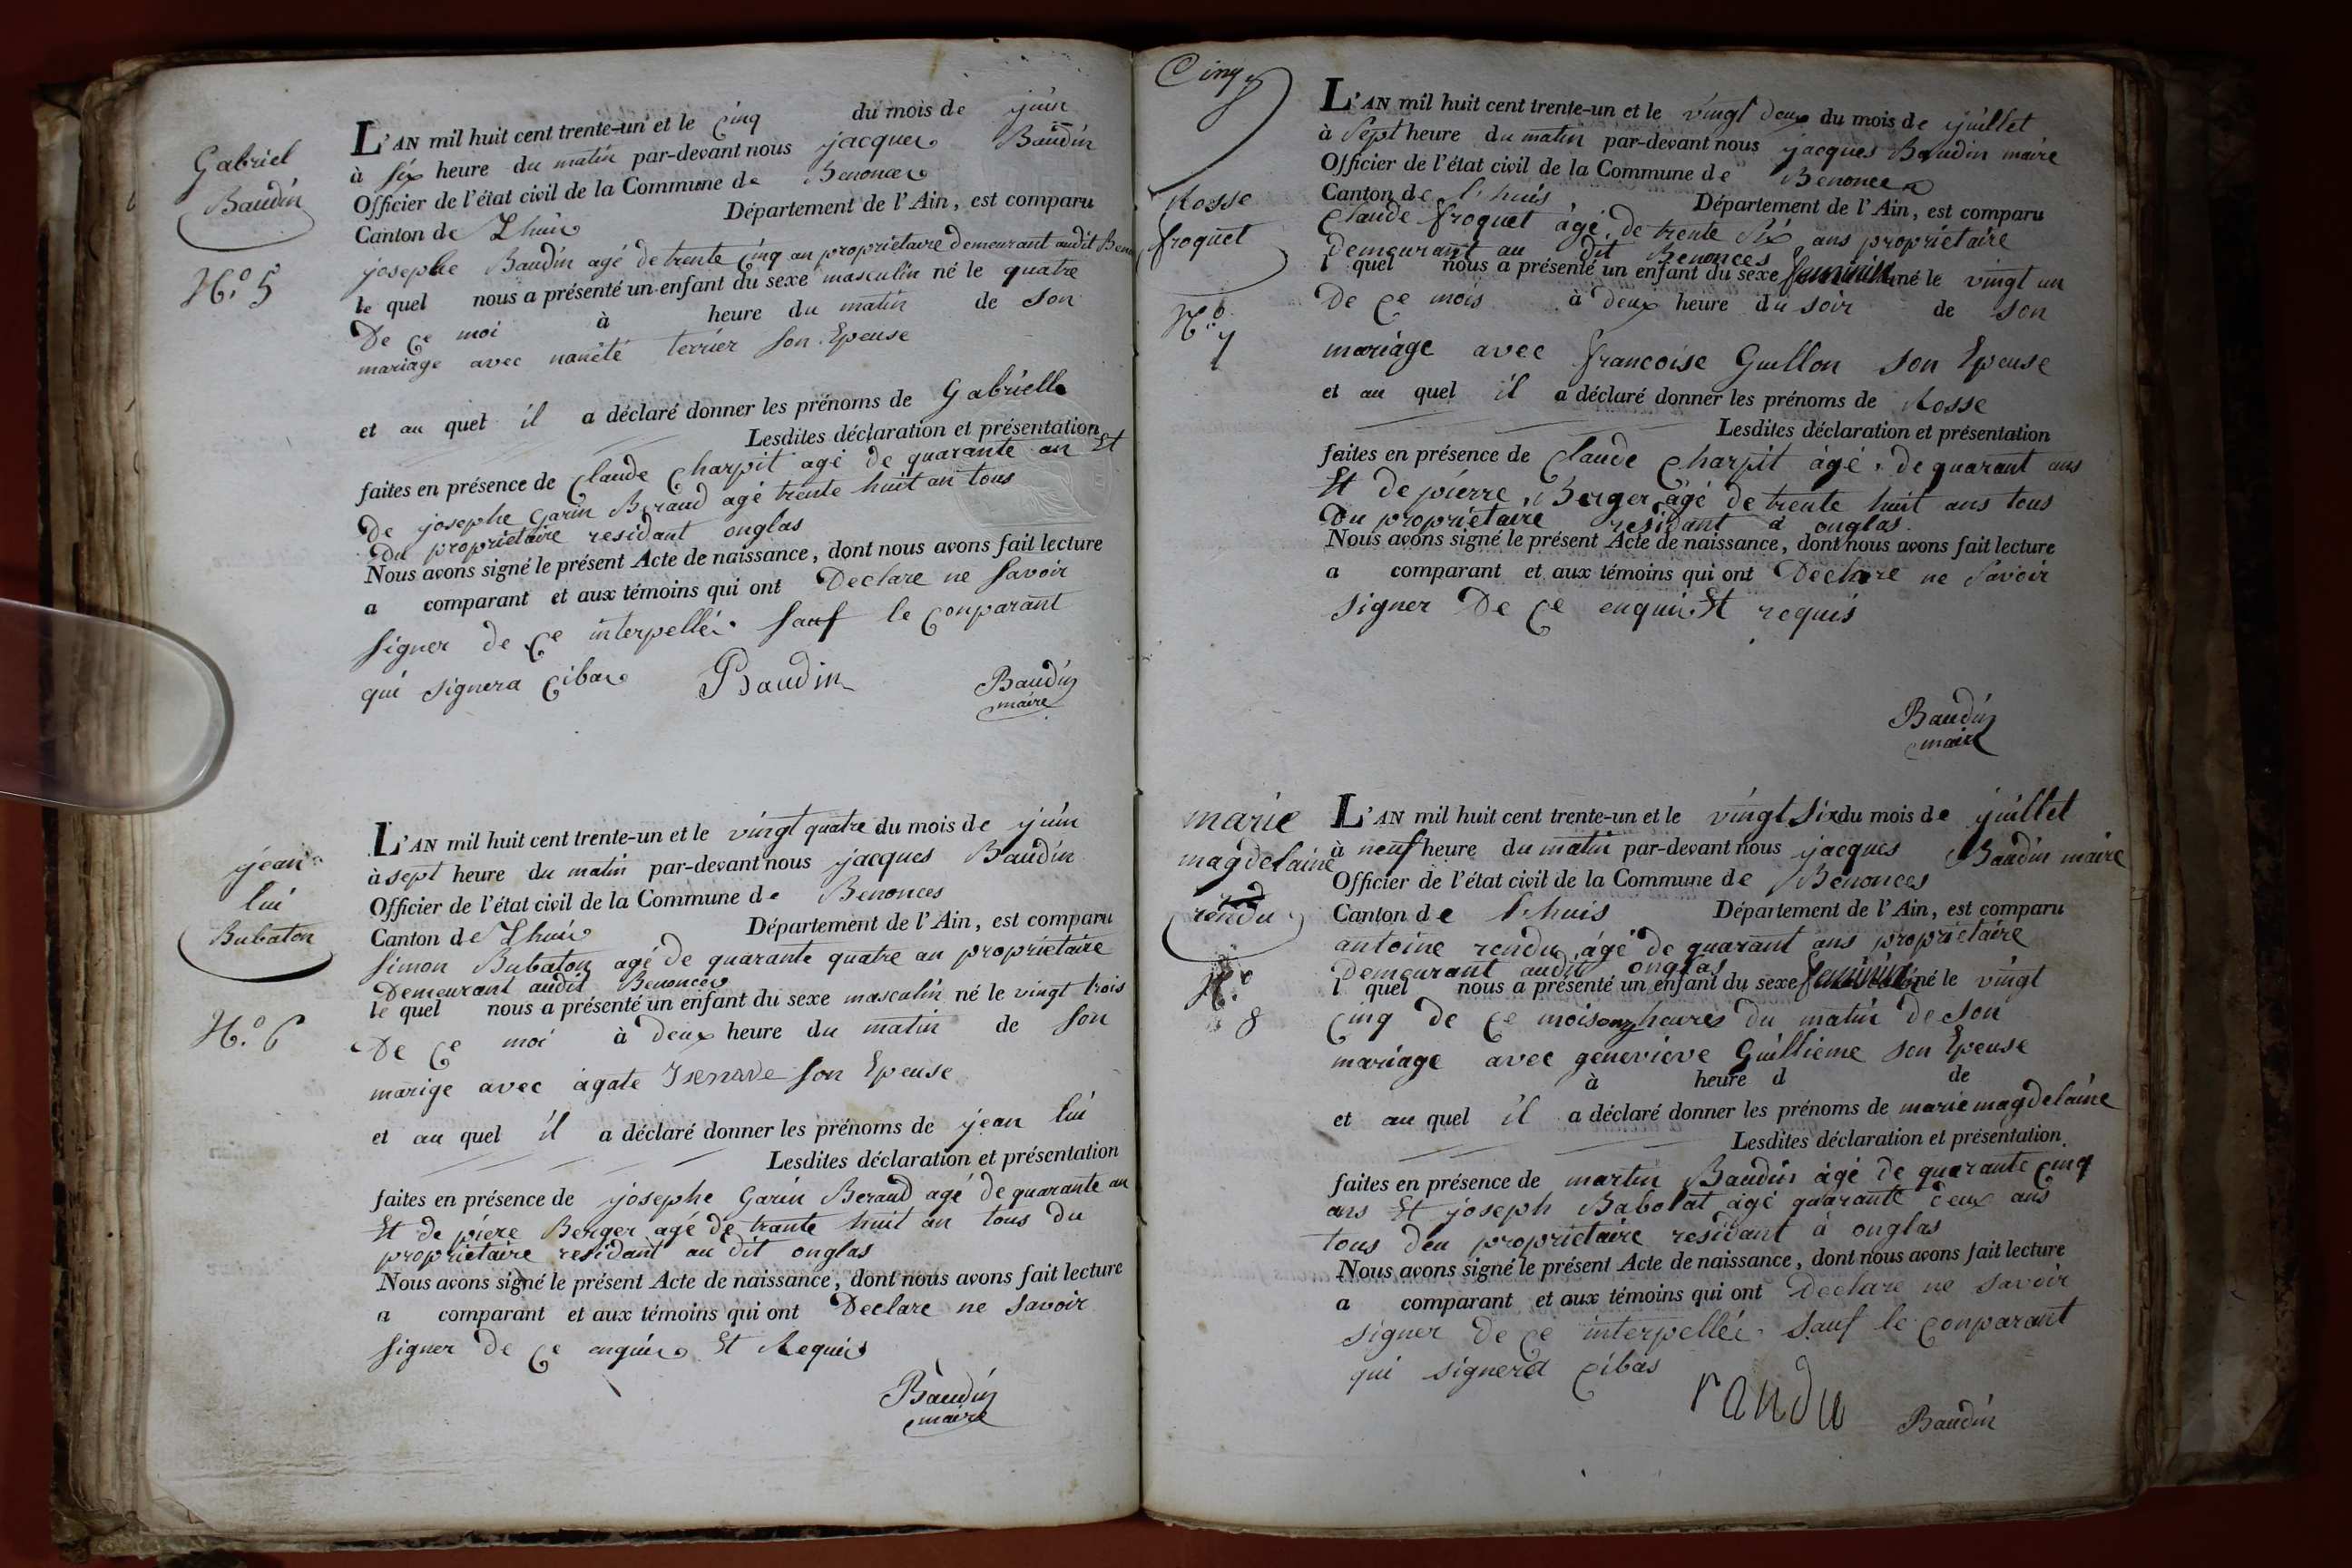 Gabriel
Baudin
N.º 5
L'AN mil huit cent trente-un et le cinq du mois de juin
à six heure du matin par-devant nous jacques Baudin
Officier de l'état civil de la Commune de Benonces
Canton de Lhuis Département de l'Ain, est comparu
josephe Baudin agé de trente cinq an proprietaire demeurant audit Beno
le quel nous a présenté un enfant du sexe masculin né le quatre
De ce moi à heure du matin de son
mariage avec naneté terrier son Epeuse
et au quel il a déclaré donner les prénoms de Gabrielle
Lesdites déclaration et présentation
faites en présence de Claude Charpit agé de quarante an Et
De josephe Garin Beraud agé trente huit an tous
Du proprietaire residant onglas
Nous avons signé le présent Acte de naissance, dont nous avons fait lecture
a comparant et aux témoins qui ont Declare ne savoir
signer de ce interpellés sauf le conparant
qui signera cibas Baudin Baudin
maire
jean
lui
Bubaton
N.º 6
L'AN mil huit cent trente-un et le vingt quatre du mois de juin
à sept heure du matin par-devant nous jacques Baudin
Officier de l'état civil de la Commune de Benonces
Canton de Lhuis Département de l'Ain, est comparu
Simon Bubaton agé de quarante quatre an proprietaire
Demeurant audit Benonces
le quel nous a présenté un enfant du sexe masculin né le vingt trois
De ce moi à deux heure du matin de son
marige avec agate son Epeuse
et au quel il a déclaré donner les prénoms de jean lui
Lesdites déclaration et présentation
faites en présence de josephe Garin Beraud agé de quarante an
Et de piere Berger agé de trante huit an tous du
proprietaire residant au dit onglas
Nous avons signé le présent Acte de naissance, dont nous avons fait lecture
a comparant et aux témoins qui ont Declare ne savoir
signer de ce enquis Et Requis
Baudin
maire
Cinq
Rosse
froquet
N.º 7
L'AN mil huit cent trente-un et le vingt deux du mois de juillet
à Sept heure du matin par-devant nous jacques Baudin maire
Officier de l'état civil de la Commune de Benonces
Canton de l'huis Département de l'Ain, est comparu
Claude froquet âgé de trente six ans proprietaire
demeurant au dit Benonces
l quel nous a présenté un enfant du sexe feminin né le vingt un
De ce mois à deux heure du soir de son
mariage avec francoise Guillon son Epeuse
et au quel il a déclaré donner les prénoms de Rosse
Lesdites déclaration et présentation
faites en présence de Claude Charpit âgé de quarant ans
Et de pierre Berger âgé de trente huit ans tous
Du proprietaire residant à onglas
Nous avons signé le présent Acte de naissance, dont nous avons fait lecture
a comparant et aux témoins qui ont Declare ne savoir
signer De ce enquis Et requis
Baudin
maire
marie
magdelaine
rendu
N.º 8
L'AN mil huit cent trente-un et le vingt six du mois de juillet
à neuf heure du matin par-devant nous jacques Baudin maire
Officier de l'état civil de la Commune de Benonces
Canton de l'huis Département de l'Ain, est comparu
antoine rendu âgé de quarant ans proprietaire
Demeurant audit onglas
l quel nous a présenté un enfant du sexe feminin né le vingt
cinq de ce mois onz heures du matin de son
mariage avec genevieve Guillieme son Epeuse
à heure d de
et au quel il a déclaré donner les prénoms de marie magdelaine
Lesdites déclaration et présentation
faites en présence de martin Baudin âgé de quarante cinq
ans Et joseph Babolat âgé quarante deux ans
tous deu proprietaire residant à onglas
Nous avons signé le présent Acte de naissance, dont nous avons fait lecture
a comparant et aux témoins qui ont Declare ne savoir
signer de ce interpellés sauf le conparant
qui signera cibas
randu Baudin